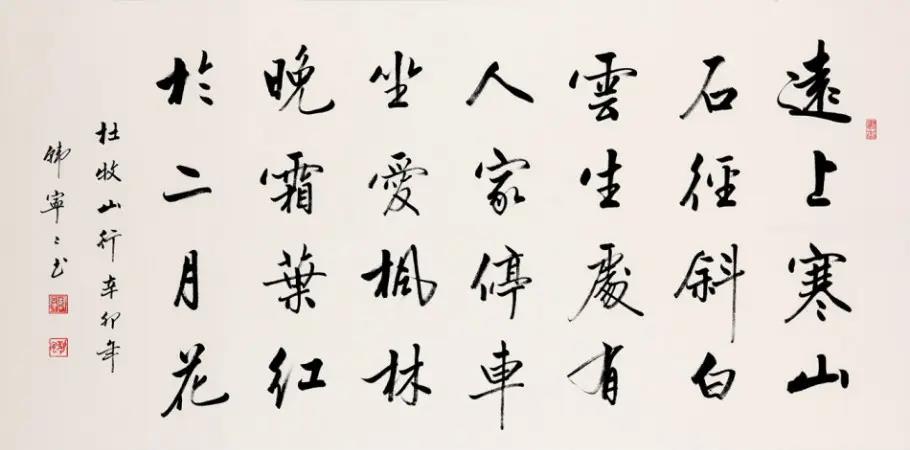 遠上寒山
石徑斜白
雲生處有
人家停車
坐愛楓林
晚霜葉紅
於二月花
杜牧山行辛卯年
韩寧〻书